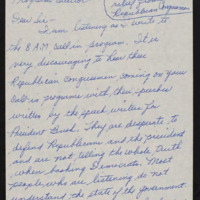 Dear Sir-
I am listening as I write to
the 8 A.M. call in program. It is
very discouraging to hear these
Republican Congressmen coming on your
call-in programs with their speeches
written by the speech writers for
President Bush. They are desperate to
defend Republicans and the president
and are not telling the whole truth
when bashing Democrats. Most
people who are listening do not
understand the state of the government